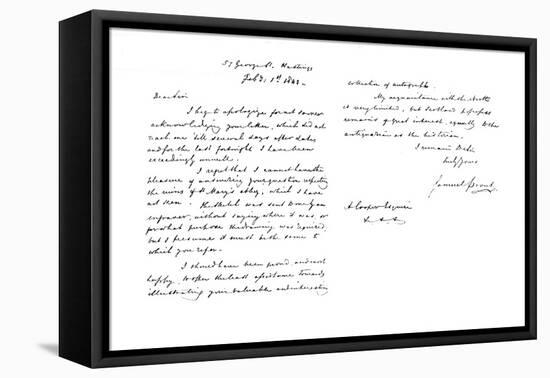 57 George St. Hastings
Feby. 1st 1843
Dear Sir
I beg to apologize for not sooner
acknowledging your letter, which did not
reach me 'till several days after date
and for the last fortnight I have been
exceedingly unwell.
I regret that I cannot have the
pleasure of answering your question respecting
the ruins of St. Mary's abbey, which I have
not seen. The sketch was sent to me by an
engraver, without saying where it was, or
for what purpose the drawing was required,
but I presume it must be the same to
which you refer.
I should have been proud, and most
happy, to offer the least assistance towards
illustrating your valuable and interesting
collection of autographs.
My acquaintance with the North
is very limited, but Scotland possesses
remains of great interest, equally to the
antiquarian as the historian.
I remain Dr Sir
truly yours
Samuel Prout
A Cooper Esquire